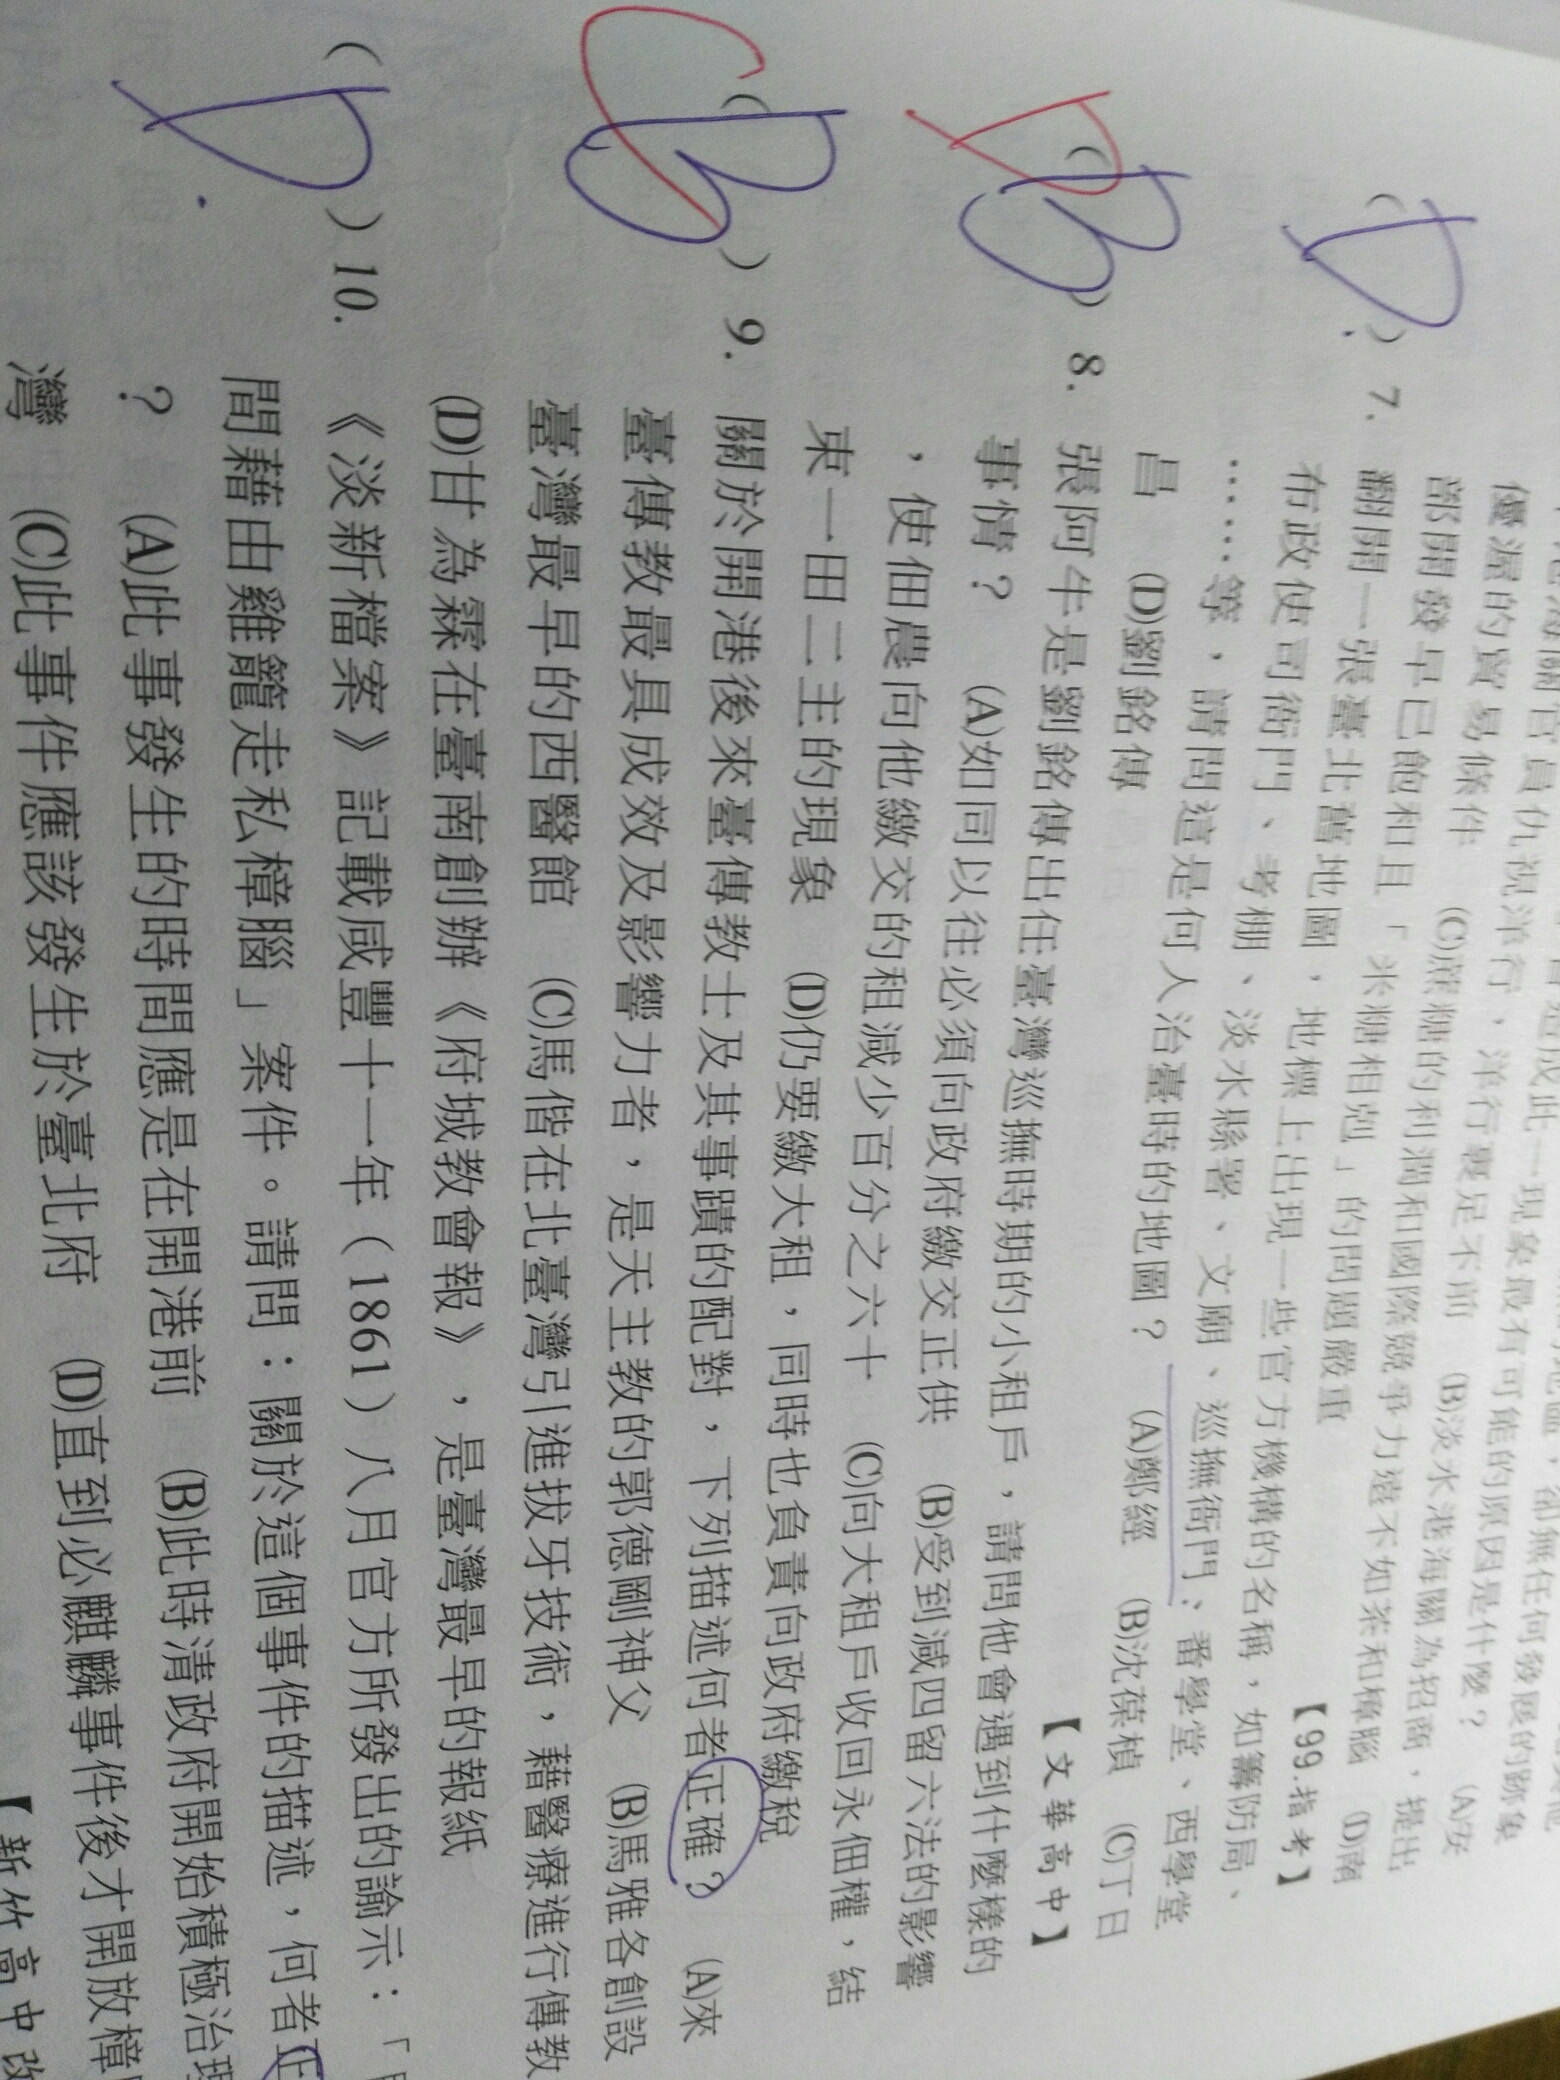 優渥的貿易條件 (C)蔗糖的利潤和國際競爭力遠不如茶和樟腦 (D)南
部開發早已飽和且「米糖相剋」的問題嚴重 【99.指考】
( D. ) 7. 翻開一張臺北舊地圖，地標上出現一些官方機構的名稱，如籌防局、
布政使司衙門、考棚、淡水縣署、文廟、巡撫衙門、番學堂、西學堂
……等，請問這是何人治臺時的地圖？ (A)鄭經 (B)沈葆楨 (C)丁日
昌 (D)劉銘傳 【文華高中】
D ( B ) 8. 張阿牛是劉銘傳出任臺灣巡撫時期的小租戶，請問他會遇到什麼樣的
事情？ (A)如同以往必須向政府繳交正供 (B)受到減四留六法的影響
，使佃農向他繳交的租減少百分之六十 (C)向大租戶收回永佃權，結
束一田二主的現象 (D)仍要繳大租，同時也負責向政府繳稅
C ( B ) 9. 關於開港後來臺傳教士及其事蹟的配對，下列描述何者正確？ (A)來
臺傳教最具成效及影響力者，是天主教的郭德剛神父 (B)馬雅各創設
臺灣最早的西醫館 (C)馬偕在北臺灣引進拔牙技術，藉醫療進行傳教
(D)甘為霖在臺南創辦《府城教會報》，是臺灣最早的報紙
( D. ) 10. 《淡新檔案》記載咸豐十一年（1861）八月官方所發出的諭示：「
間藉由雞籠走私樟腦」案件。請問：關於這個事件的描述，何者正
？ (A)此事發生的時間應是在開港前 (B)此時清政府開始積極治理
灣 (C)此事件應該發生於臺北府 (D)直到必麒麟事件後才開放樟
【新竹高中改